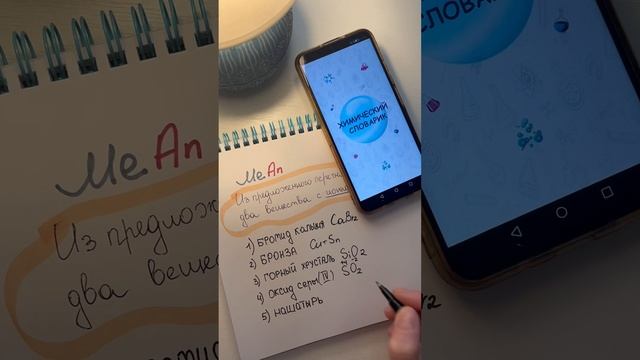 MeAn
Из предложенного
два вещества с
1) БРОМИД КАЛЬЦИЯ CaBr2
2) БРОНЗА Cu+Sn
3) ГОРНЫЙ ХРУСТАЛЬ SiO2
4) ОКСИД серы (IV) SO2
5) НАШАТЫРЬ
ХИМИЧЕСКИЙ
СЛОВАРИК
MeAn
Из
два
СЛОВАРИК